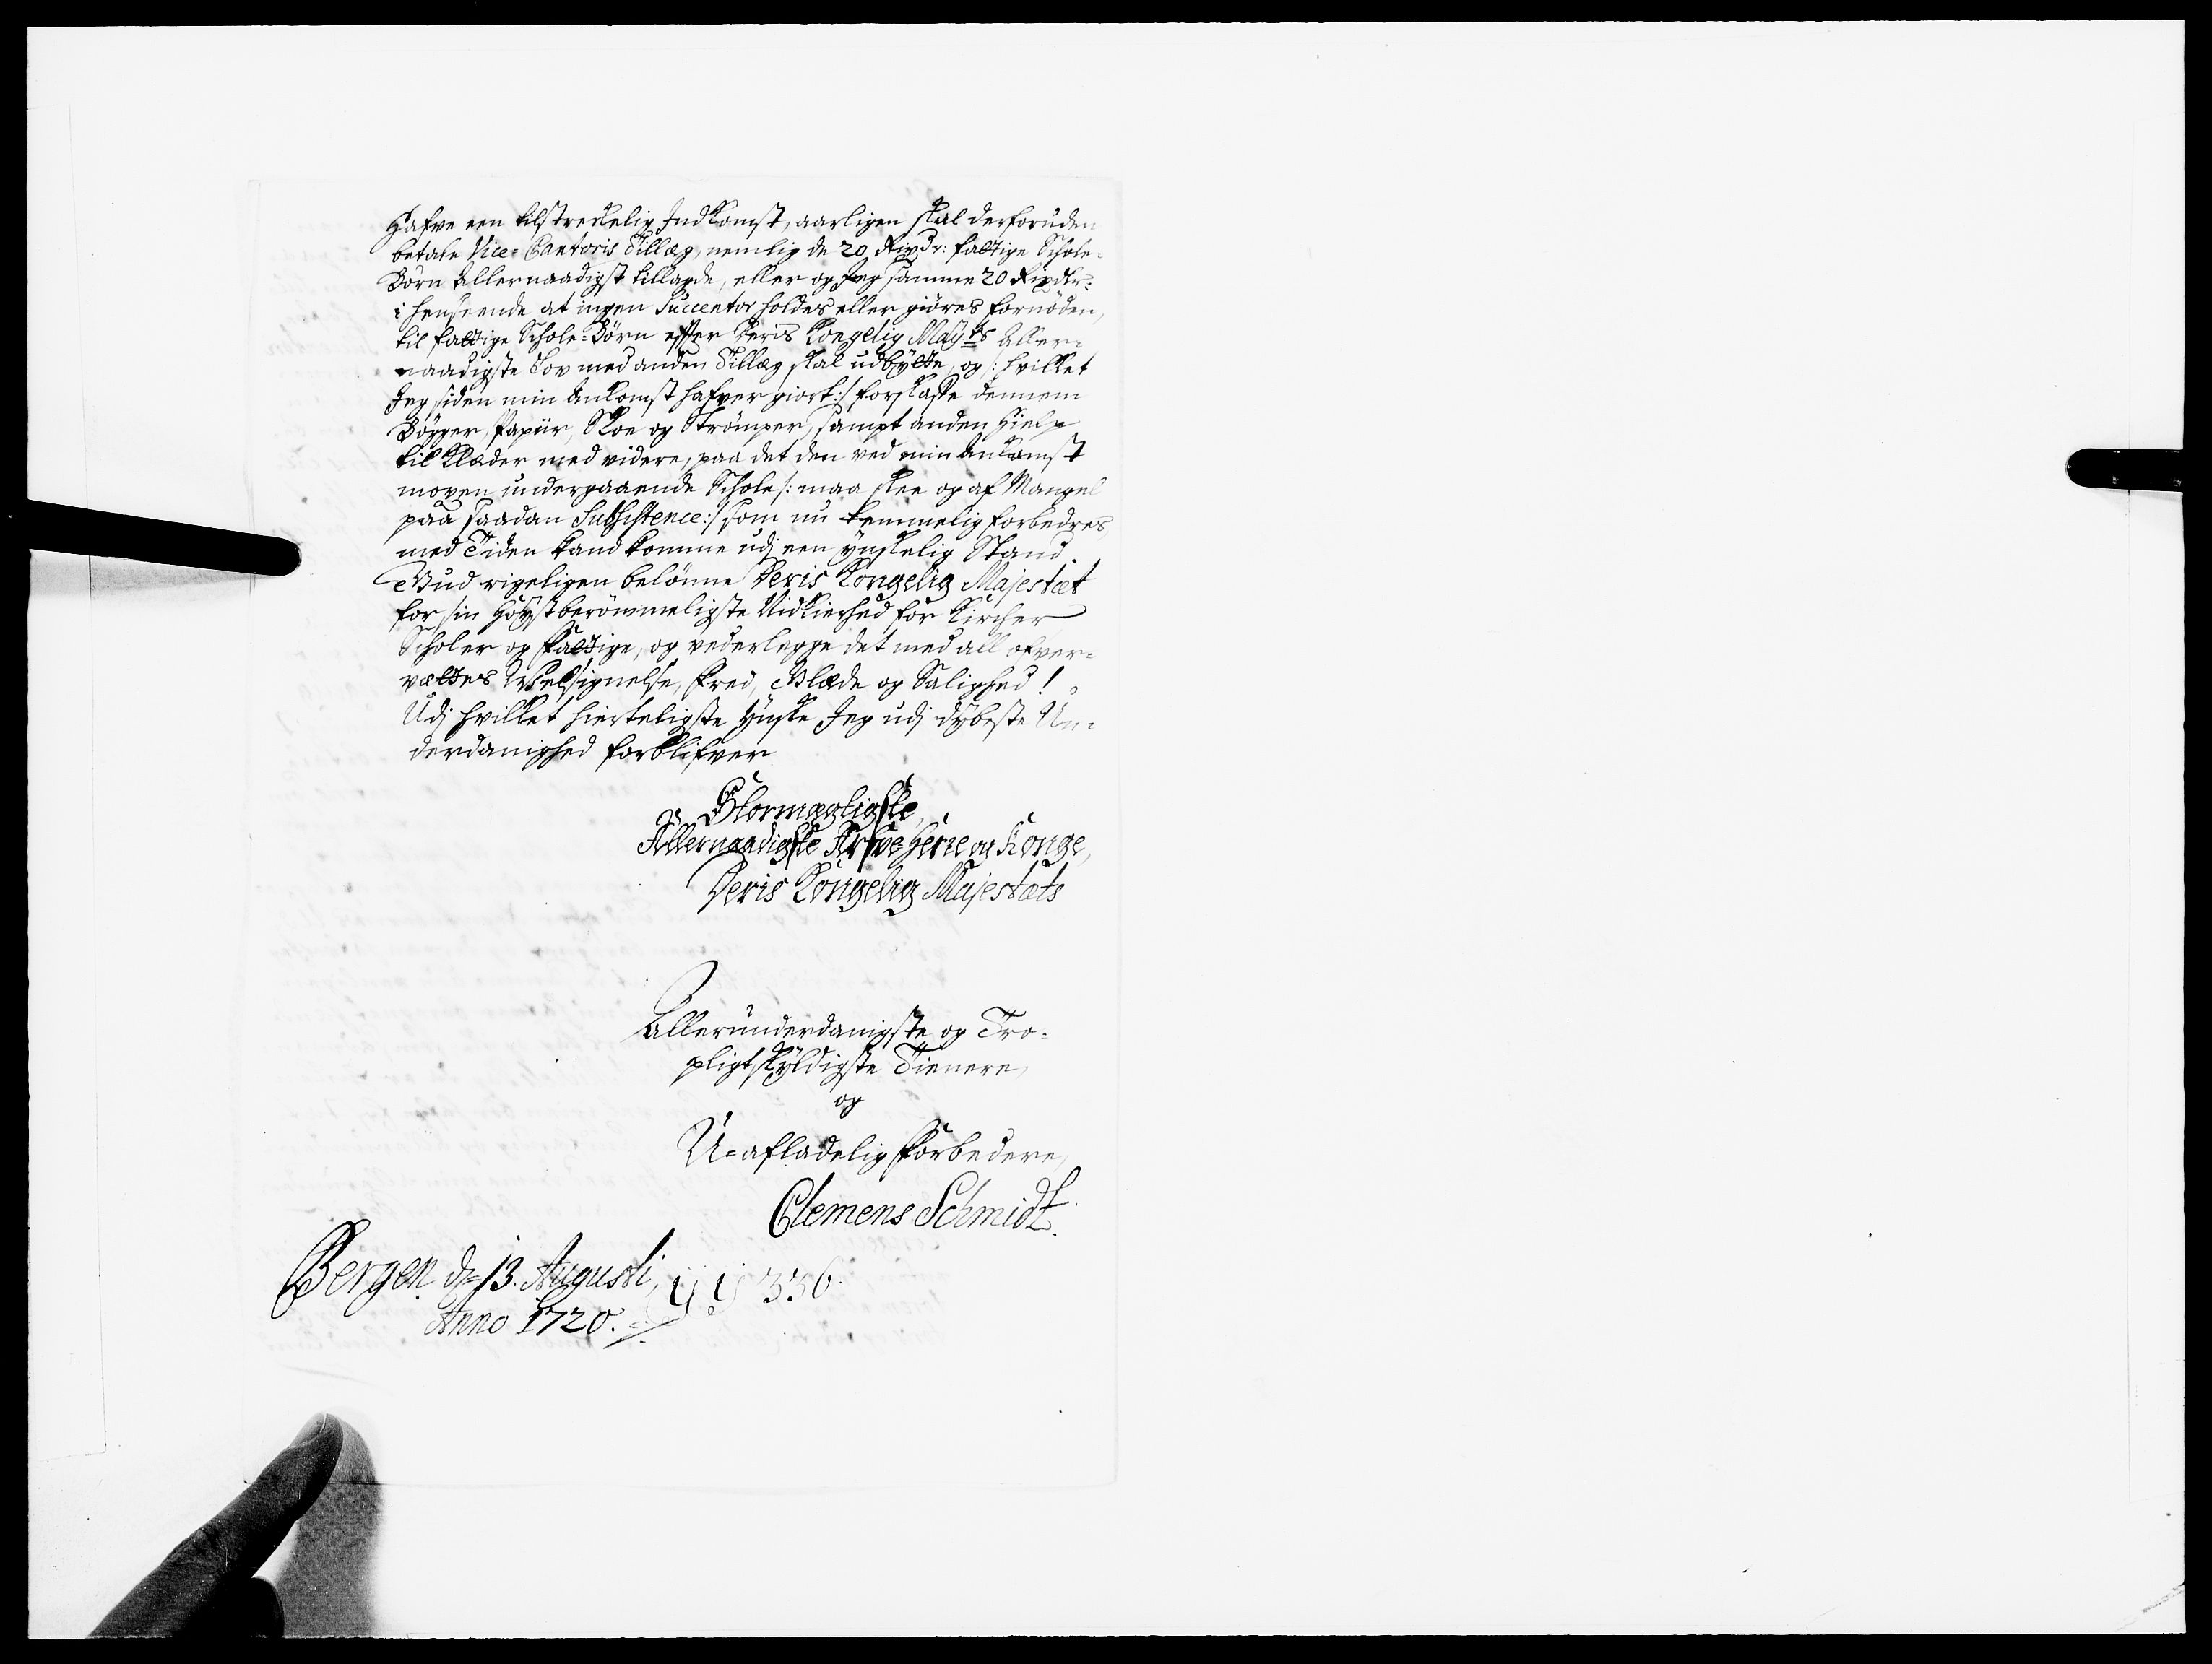 Hafve een tilstreckelig Indkomst, aarligen skal derforuden
betale Vice-Cantoris Tillæg, nemlig de 20 Rixdr: fattige Schole-
Börn Allernaadigst tillagde, eller og Jeg samme 20 Rixdlr:
i henseende at ingen Succentor holdes eller giöres fornöden,
til fattige Schole-Börn efter Deris Kongelig May:ts Aller-
naadigste Lov med anden Tillæg skal udbytte, og /: hvilket
Jeg siden min Ankomst hafver giort :/ forskaffe dennem
Bögger, Papiir, Skoe og Strömper, sampt anden Hielp
til Klæder med videre, paa det den ved min Ankomst
moxen undergaaende Schole /: maa skee og af Mangel
paa saadan Subsistence :/ som nu temmelig forbedres,
med Tiden kand komme udj een ynskelig Stand.
Gud rigeligen belönne Deris Kongelig Majestæt
for sin Höystberömmeligste Nidkierhed for Kircher
Scholer og Fattige, og vederlegge det med all ofver-
vættes Velsignelse, Fred, Glæde og Salighed!
Udj hvilket hierteligste Ynske Jeg udj dybeste Un-
derdanighed forblifver
Stormægtigste,
Allernaadigste Arfve Herre og Konge,
Deris Kongelig Majestæts
Allerunderdanigste og Tro-
pligtskyldigste Tienere,
og
U-afladelig Forbedere,
Clemens Schmidt.
Bergen d= 13. Augusti,
Anno 1720.
336.